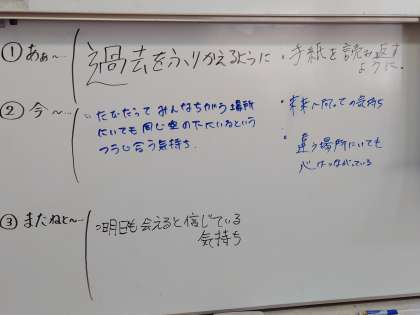 ① あぁ〜…
過去をふりかえるように、手紙を読み返す
ように。
② 今〜…
たびだって みんなちがう場所
にいても同じ空の下にいるという
つうじ合う気持ち.
・未来へ向っての気持ち
・違う場所にいても
心はつながっている
③ またねと〜…
明日も会えると信じている
気持ち